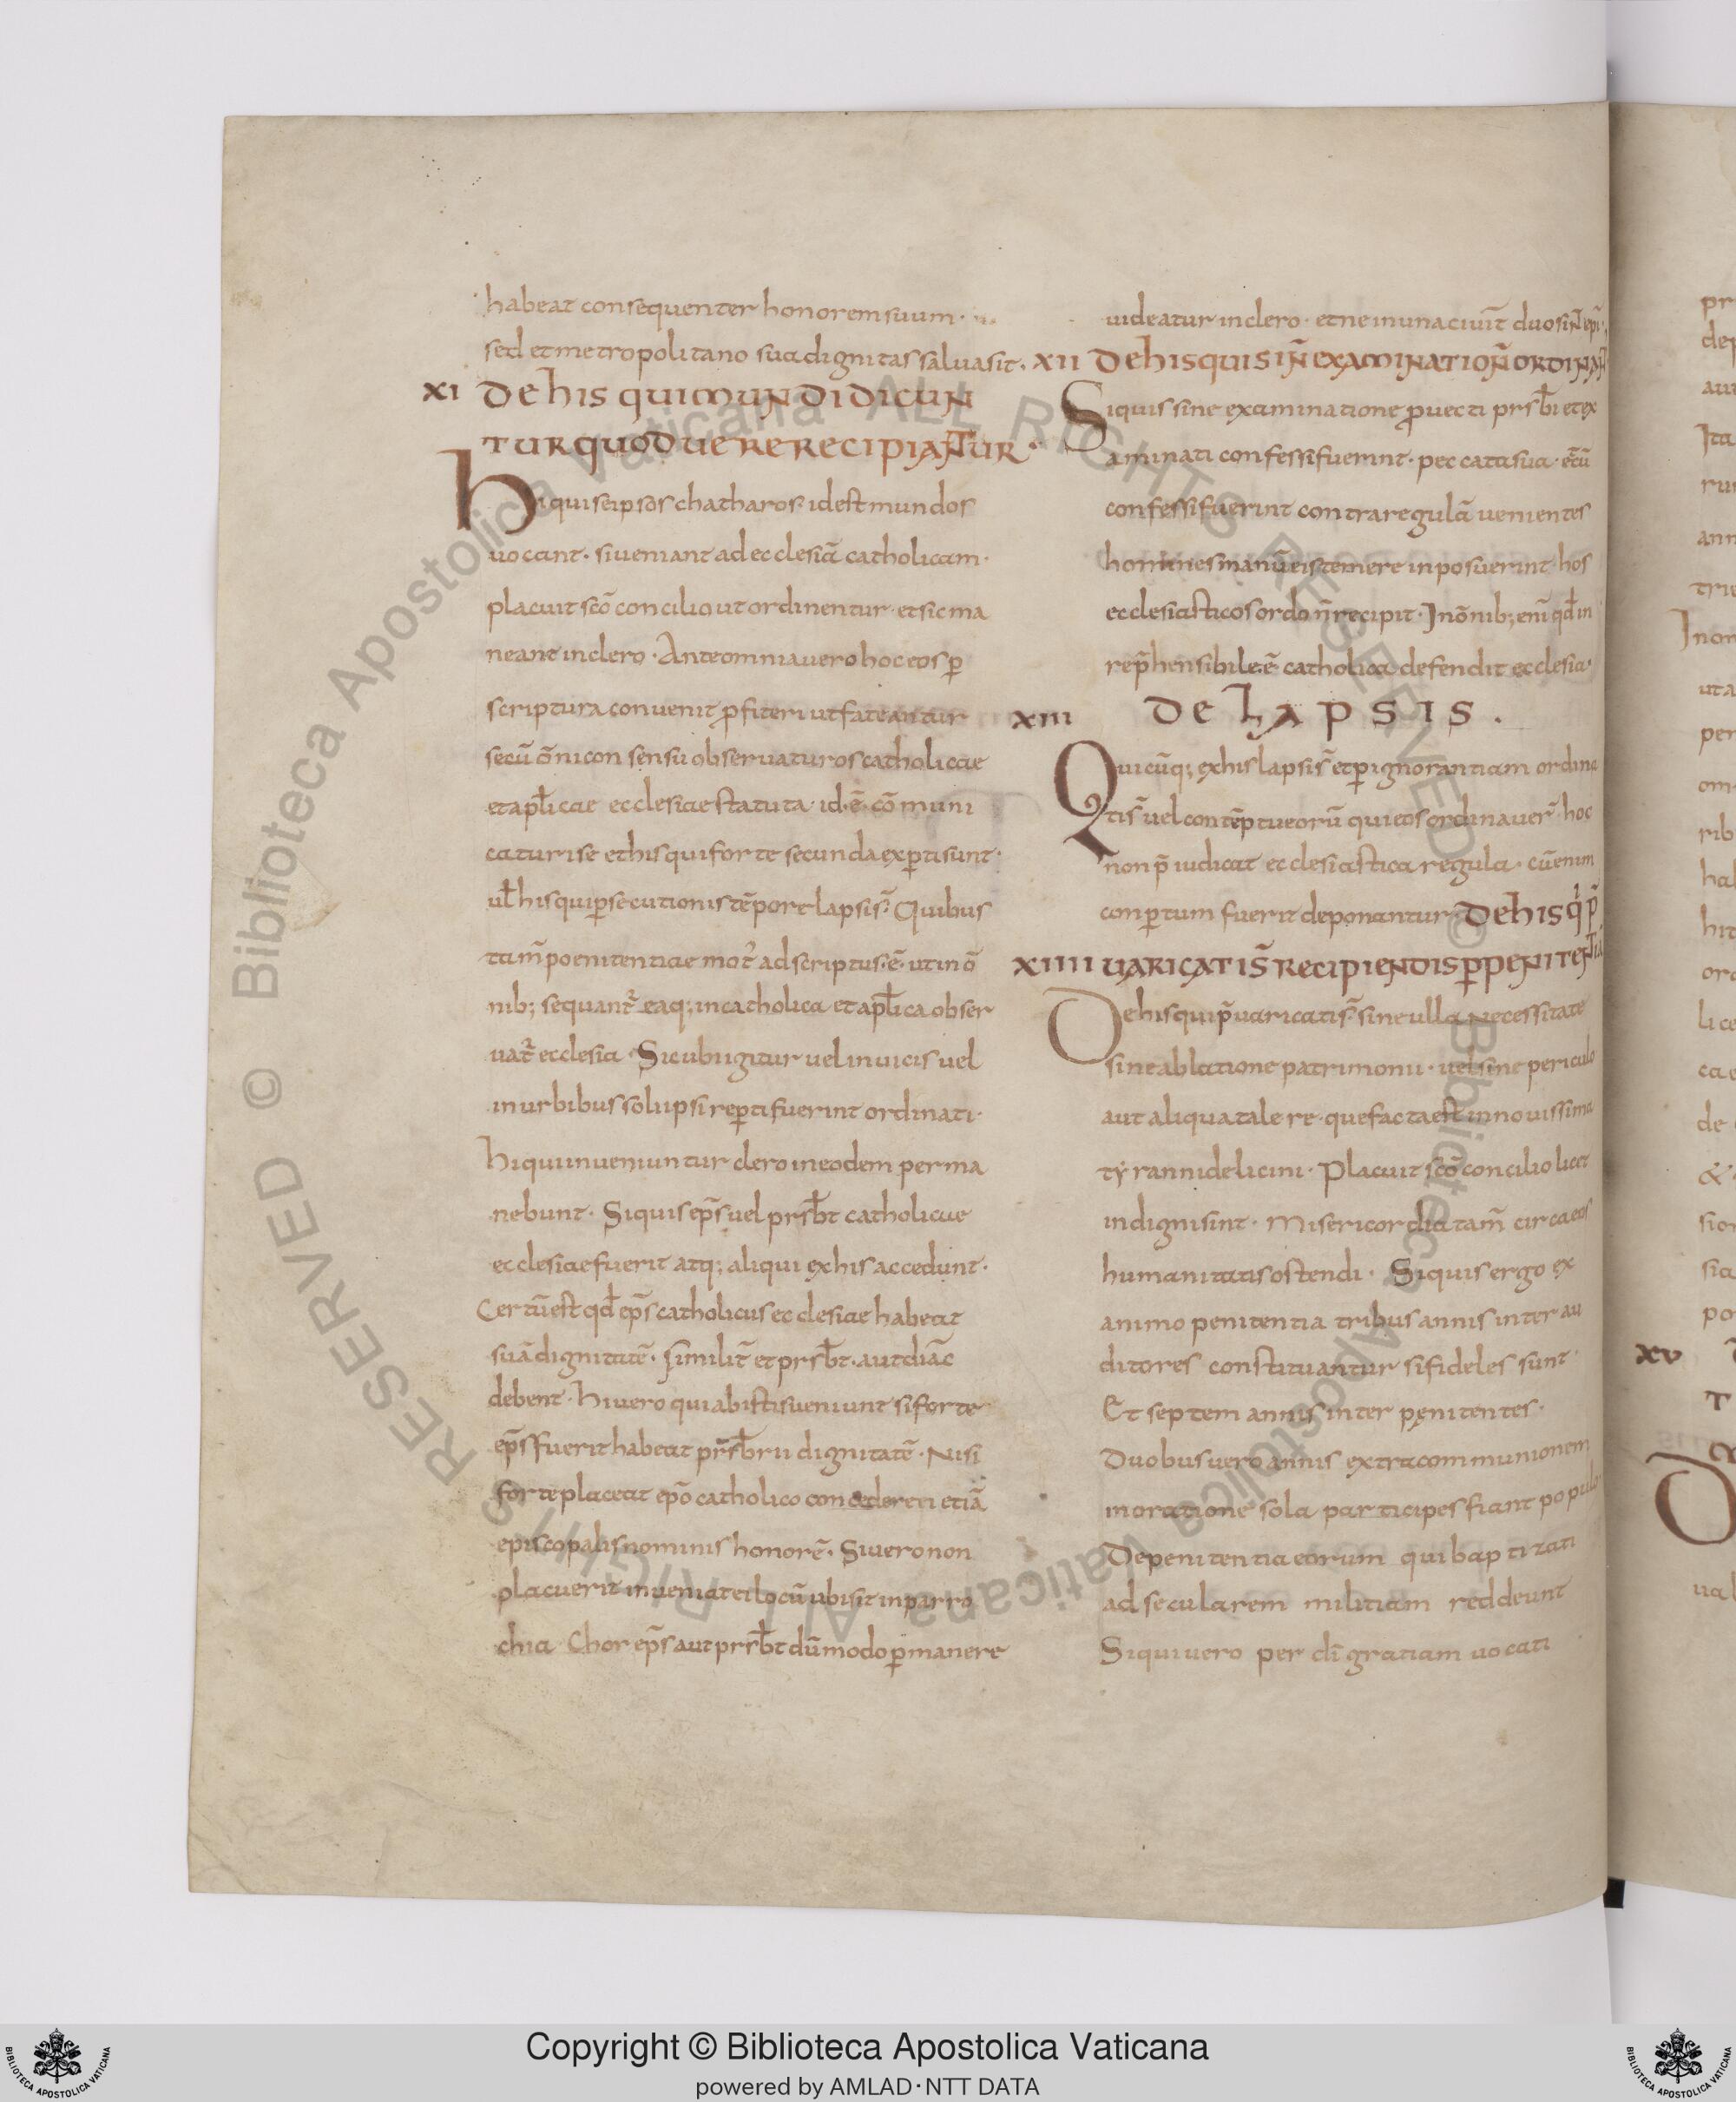 habeat consequenter honorem suum ·
sed et metropolitano sua dignitas salua sit ·
XI De his qui mundi dicun
tur quod uere recipiantur ·
Hi qui seipsos chatharos · id est mundos
uocant · si ueniant ad ecclesiā catholicam ·
placuit scō concilio ut ordinentur · et sic ma
neant in clero · Ante omnia uero hoc eos ꝑ
scriptura conuenit ꝓfiteri ut fateantur
secū ōni consensu obseruaturos catholicae
et apłicae ecclesiae statuta · id · ē · cōmuni
caturi se et his qui forte secunda exꝑti sunt ·
uł his qui ꝑsecutionis tēpore lapsi s̄ · Quibus
tam̄ poenitentiae mot᷒ adscriptus · ē · ut in ō
nib; sequant᷒ eaq; in catholica et apłica obser
uat᷒ ecclesia · Sicubi igitur uel in uicis uel
in urbibus soli ipsi reꝑti fuerint ordinati ·
Hi qui inueniuntur clero in eodem perma
nebunt · Si quis ep̄s uel prsƀt catholicae
ecclesiae fuerit atq; aliqui ex his accedunt ·
Certū est qđ ep̄s catholicus ecclesiae habeat
suā dignitatē · similit̄ et prsƀt · aut diāc
debent · Hi uero qui ab istis ueniunt si forte
ep̄s fuerit habeat prsƀrii dignitatē · Nisi
forte placeat ep̄o catholico concedere ei etiā
episcopalis nominis honorē · Si uero non
placuerit inueniat ei locū ubi sit in parro
chia Chorep̄s aut prsƀt dū modo ꝑmanere
uideatur in clero · et ne in una ciuit̄ duo sint ep̄i ·
XII De his qui sin̄ examination̄ ordinant̄
Si quis sine examinatione ꝓuecti prsƀi et ex
aminati confessi fuerint · peccata sua · et cū
confessi fuerint contra regulā uenientes
homines manū eis temere inposuerint · hos
ecclesiasticos ordo n̄ recipit · In ōnib; eni qđ in
rep̄hensibile ē catholica defendit ecclesia ·
XIII De lapsis .
Quicūq; ex his lapsi s̄ et ꝑ ignorantiam ordina
ti s̄ uel contēptu eorū qui eos ordinauer̄ · hoc
non p̄iudicat ecclesiastica regula · cū enim
conꝑtum fuerit deponantur · De his q̇ p̄
XIIII uaricati s̄ recipiendis ꝑ penitentiā
De his qui p̄uaricati s̄ sine ulla necessitate
sine ablatione patrimonii · uel sine periculo
aut aliqua tale re · que facta est in nouissima
tyrannide licini · Placuit scō concilio licet
indigni sint · Misericordia tam̄ circa eos
humanitatis ostendi · Si quis ergo ex
animo penitentia tribus annis inter au
ditores constituantur si fideles sunt ·
Et septem annis inter penitentes ·
Duobus uero annis extra communionem
in oratione sola participes fiant populo
De penitentia eorum qui baptizati
ad secularem militiam reddeunt
Si qui uero per di gratiam uocati
XV
Copyright © Biblioteca Apostolica Vaticana
powered by AMLAD·NTT DATA